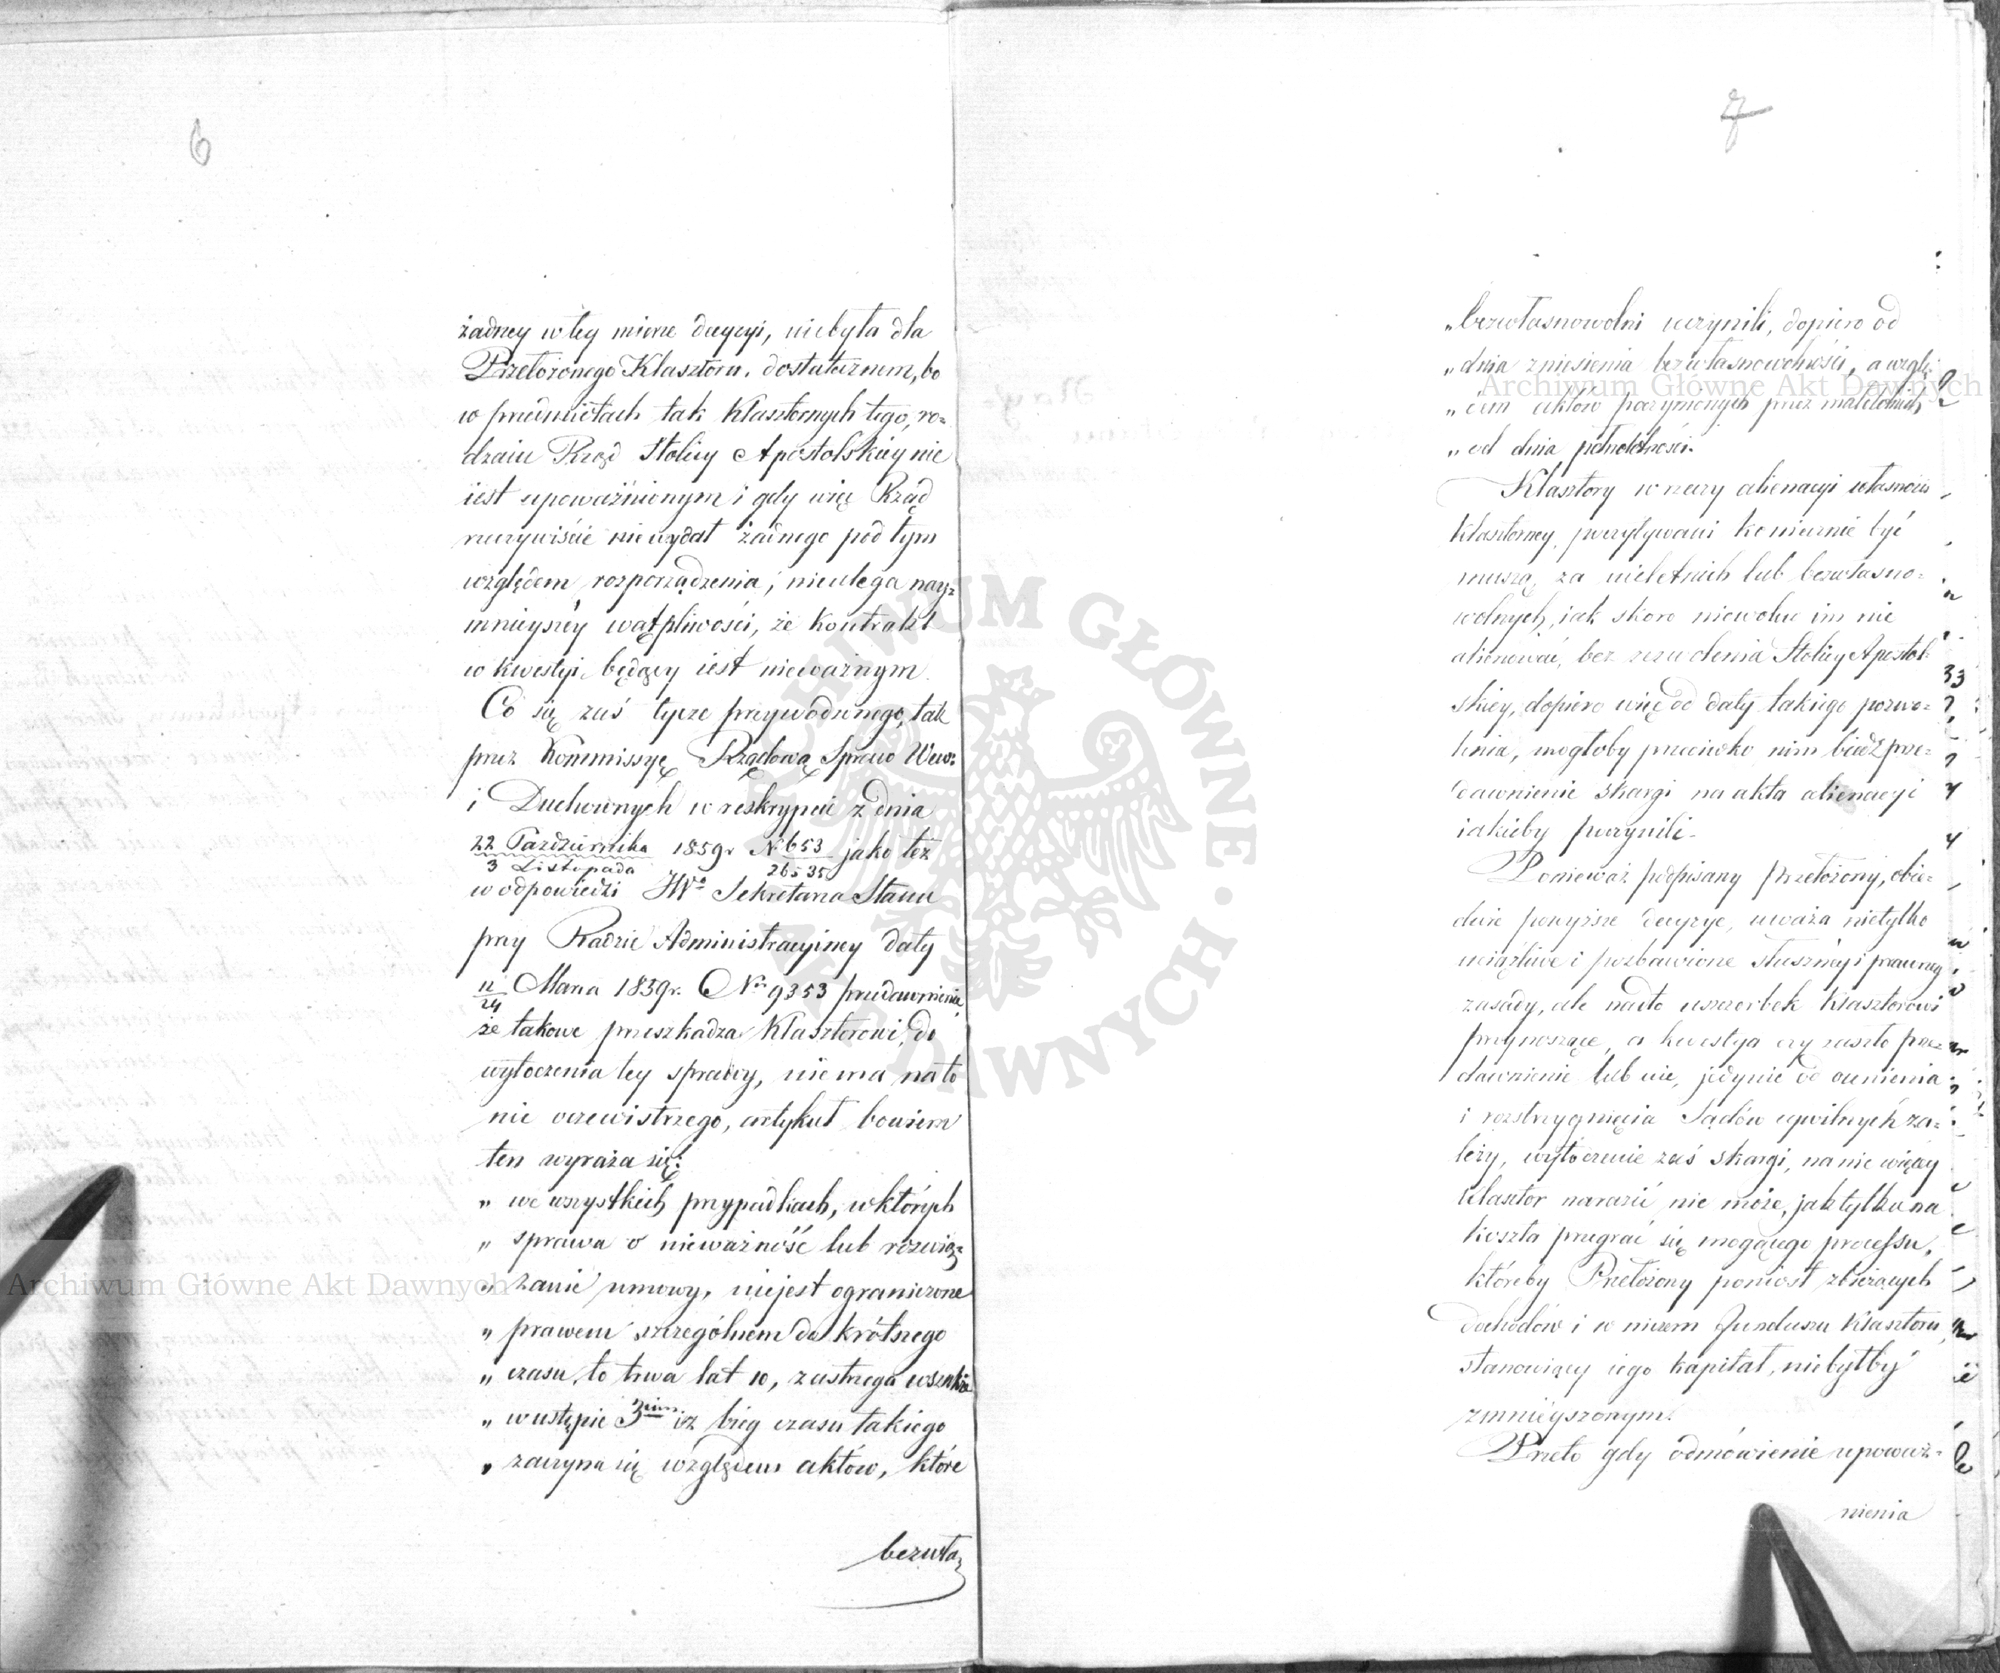 6
żadney w tey mierze decyzyi, niebyła dla
Przełożonego Klasztoru, dostatecznem, bo
w przedmiotach tak Klasztornych tego, ro=
dzaiu Rząd Stolicy Apostolskiey nie
iest upoważnionym i gdy więc Rząd
rzeczywiście niewydał żadnego pod tym
względem rozporządzenia, nieulega nay=
mnieyszéy wątpliwości, że kontrakt
w kwestyi będący iest nieważnym.
Co się zaś tycze przywodzonego, tak
przez Kommissyę Rządową Spraw Wew:
i Duchownych w reskrypcie z dnia
22 Października / 3 Listopada 1859r N 653 / 26535 jako też
w odpowiedzi JWo Sekretarza Stanu
przy Radzie Administracyiney daty
12/24 Marca 1839r. No 9353 przedawnienia,
że takowe przeszkadza Klasztorowi, do
wytoczenia tey sprawy, niema na to
nic oczewistrzego, artykuł bowiem
ten wyraża się:
„ we wszystkich przypadkach, w których
„ sprawa o nieważność lub rozwią=
„ zanie umowy, niejest ograniczone
„ prawem szczególnem do krótszego
„ czasu, to trwa lat 10, zastrzega wszakże
„ w ustępie 3cim iż bieg czasu takiego
„ zaczyna się względem aktów, które
bezwła=
7
„ bezwłasnowolni uczynili, dopiero od
„ dnia zniesienia bezwłasnowolności, a wzglę=
„ dem aktów poczynionych przez małoletnich
„ od dnia pełnoletności.
Klasztory w rzeczy alienacyi własności
klasztorney, poczytywani koniecznie być
muszą, za nieletnich lub bezwłasno=
wolnych, iak skoro niewolno im nic
alienować, bez zezwolenia Stolicy Apostol=
skiey, dopiero więc od daty takiego pozwo=
lenia, mogłoby przeciwko nim biedz prze=
dawnienie skargi na akta alienacyi
iakieby poczynili.
Ponieważ podpisany Przełożony, obie=
dwie powyższe decyzye, uważa nietylko
uciążliwe i pozbawione słusznéy i prawney
zasady, ale nadto uszczerbek Klasztorowi
przynoszące, a kwestya czy zaszło prze=
dawnienie lub nie, jedynie od ocenienia
i rozstrzygnięcia Sądów cywilnych za=
leży, wytoczenie zaś skargi, na nic więcéy
Klasztor narazić nie może, jak tylko na
koszta przegrać się mogącego processu,
któreby Przełożony poniósł z bieżących
dochodów i w niczem Fundusz Klasztoru,
stanowiący iego kapitał, niebyłby
zmnieyszonym.
Przeto gdy odmówienie upoważ=
nienia
Archiwum Główne Akt Dawnych
Archiwum Główne Akt Dawnych
ARCHIWUM GŁÓWNE AKT DAWNYCH